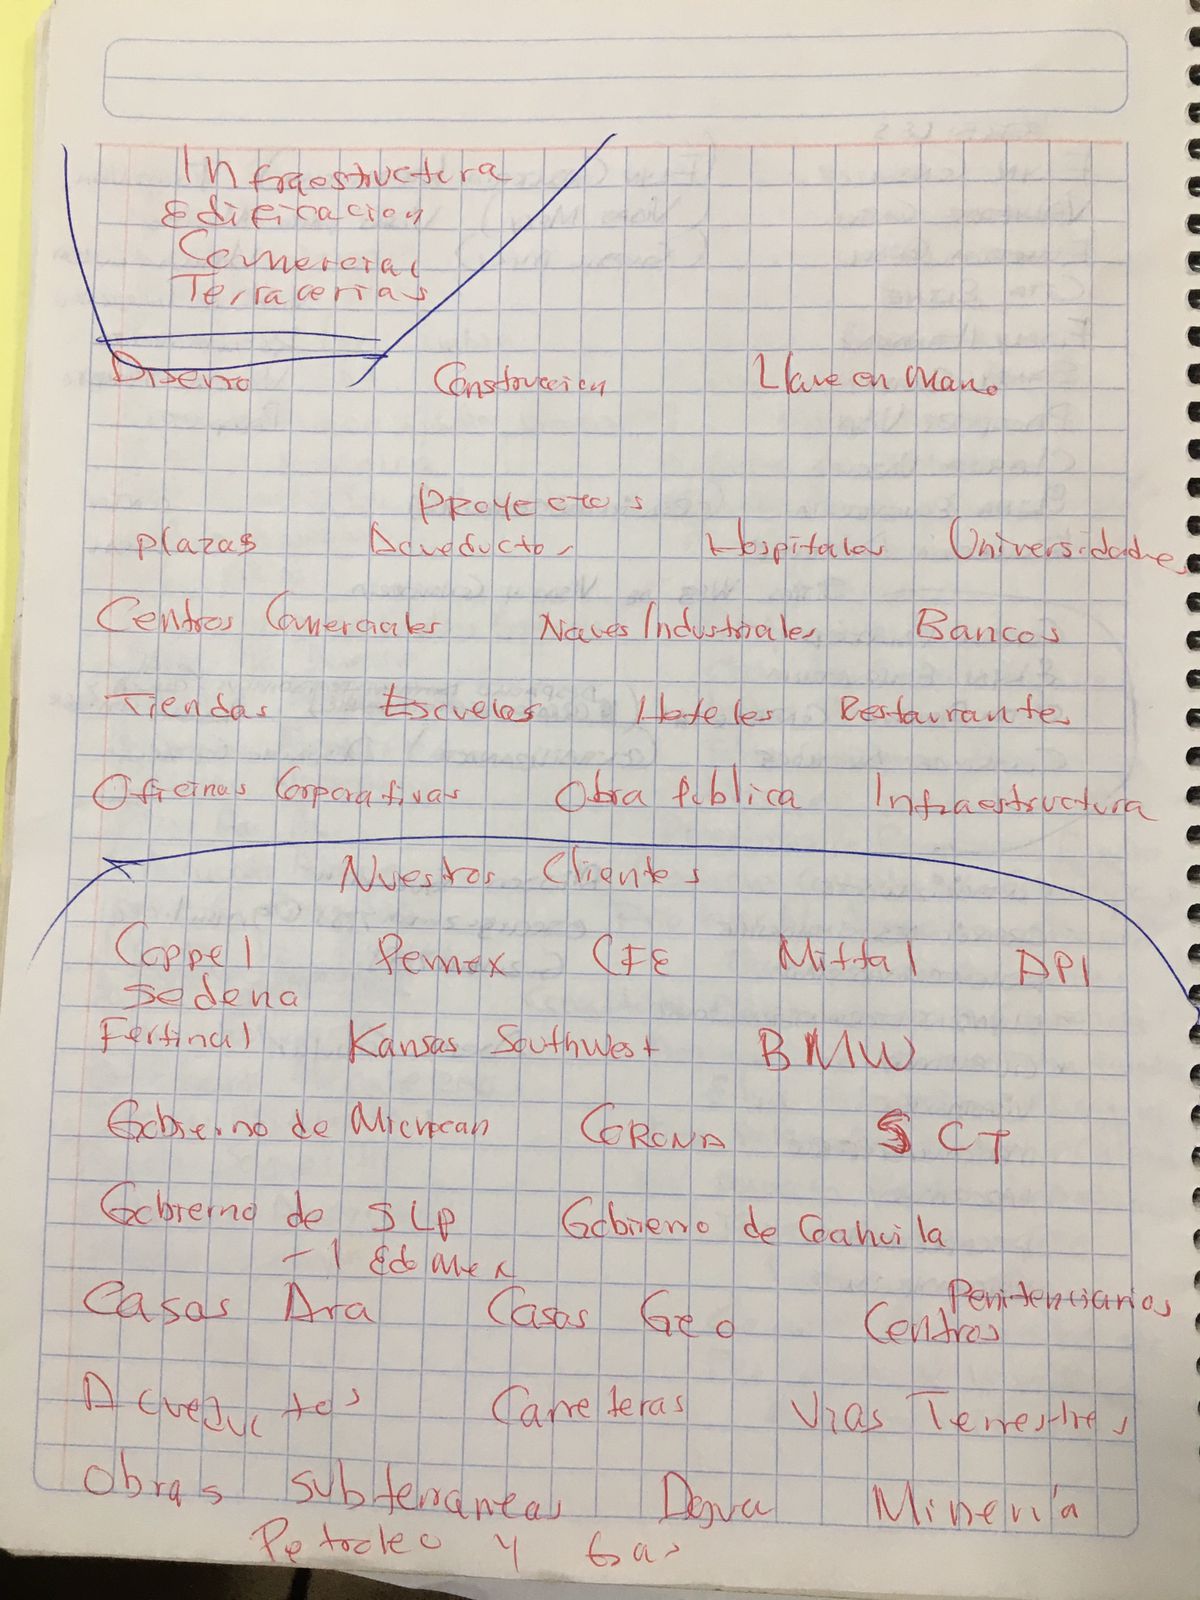 Infraestructura
Edificacion
Comercial
Terracerias
Diseño Construccion Llave en Mano
Proyectos
Plazas Acueductos Hospitales Universidades
Centros Comerciales Naves Industriales Bancos
Tiendas Escuelas Hoteles Restaurantes
Oficinas Corporativas Obra Publica Infraestructura
Nuestros Clientes
Coppel Pemex CFE Mittal API
Sedena
Fertinal Kansas Southwest BMW
Gobierno de Michocan CORONA SCT
Gobierno de SLP Gobierno de Coahuila
Edo Mex
Casas Ara Casas Geo Centros Penitenciarios
Acueductos Carreteras Vias Terrestres
Obras subterraneas Agua Minería
Petroleo y Gas